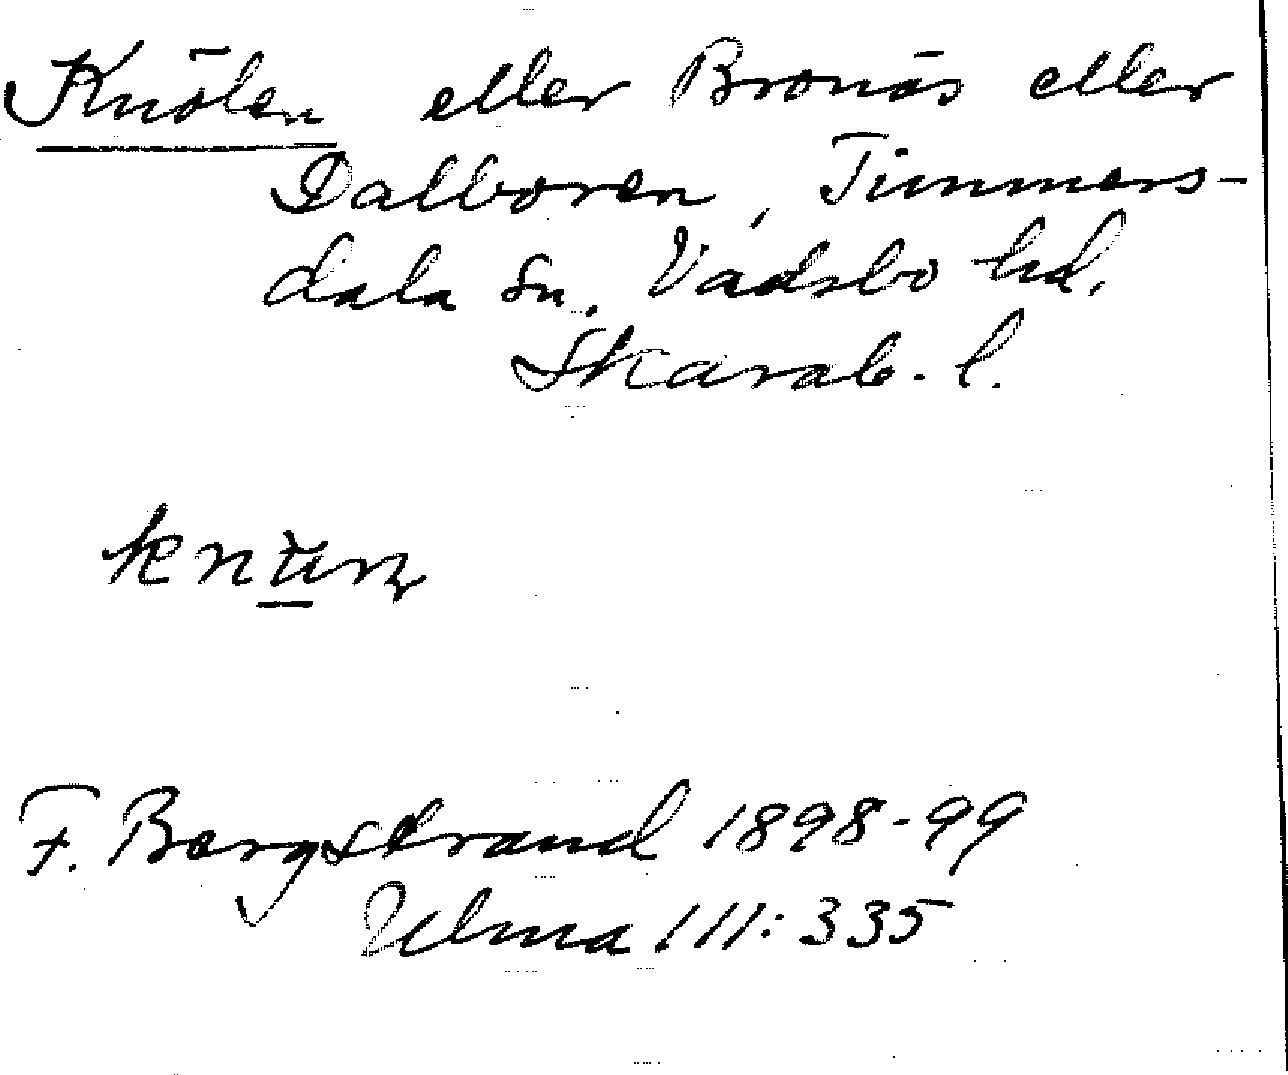 Knölen eller Bronäs eller
Dalboren, Timmers-
dala sn. Vadsbo hd.
Skarab. l.
F. Bergstrand 1898-99
Ulma 111:335